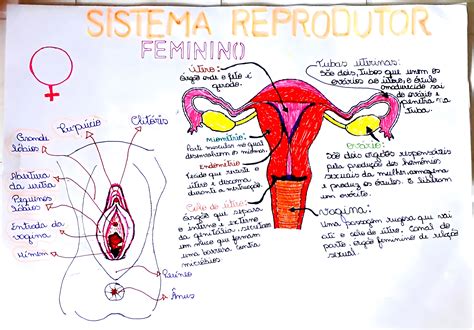 SISTEMA REPRODUTOR
FEMININO
Útero:
órgão onde o feto é
gerado.
Tubas uterinas:
São dois tubos que unem os
ovários ao útero, o óvulo
amadurecido sai
do ovário e
penetra na
tuba.
Miométrio:
Parte muscular no qual
desenvolvem os miomas.
Endométrio:
Tecido que reveste o
útero e descama
durante a menstruação.
Colo do útero:
órgão que separa
o interno e externo
da genitália, secretam
um muco que formam
uma barreira contra
micróbios.
Ovário:
São dois órgãos responsáveis
pela produção dos hormônios
sexuais da mulher, armazena
e produz os óvulos. E liberam
um ovócito.
Vagina:
Uma passagem rugosa que vai
até o colo do útero. Canal de
parto, órgão feminino de relação
sexual.
Grande
lábios
Prepúcio
Clitóris
Abertura
da uretra
Pequenos
lábios
Entrada da
vagina
Hímem
Períneo
Ânus